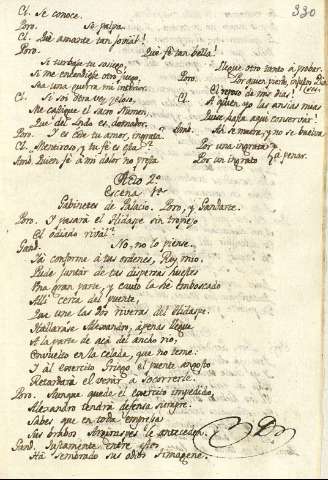 330
Cl. Se conoce.
Poro. Se palpa.
Cl. Què amante tan jovial!
Poro. Què fè tan bella!
Si turbase tu sosiego
Si me enciendiese otro fuego,
Sea una guerra mi interior.
Cl. Si soi otra vez zelosa,
Me castigue el sacro Numen,
Que del Indo es domador.
Poro. Y es este tu amor, ingrata?
Cl. Menteroso, y tu fè es ella?
Amb. Quien fè à mi dolor no presta
Llegue otro tanto à probar.
Poro. Por quien perdì, injustos Dioses,
El reposo de mis dias!
Cl. A quien yo las ansias mias
Quise hasta aquì conservar!
Amb. Ah se muera, y no se buelva
Por una ingrata
Por un ingrato
à penar.
Acto 2º
Escena 1ª
Gabinetes de Palacio. Poro, y Gandarte.
Poro. Y pasarà el Hidaspe sin tropiezo
El odiado rival?
Gand. No, no lo piense.
Yà conforme à tus ordenes, Rey mio,
Pude juntar de tus dispersas huestes
Una gran parte, y cauto la hè emboscado
Alli cerca del puente,
Que une las dos riveras del Hidaspe.
Hallarase Alexandro, apenas llegue
A la parte de acà del ancho rio,
Envuelto en la celada, que no teme.
Y al exercito Griego el puente angosto
Retardarà el venir à socorrerle.
Poro. Aunque quede el exercito impedido,
Alexandro tendrà defensa siempre.
Sabes que en toda empresa
Sus brabos Argiraspes le anteceden.
Gand. Justamente entre estos
Hà sembrado sus odios Timagene.